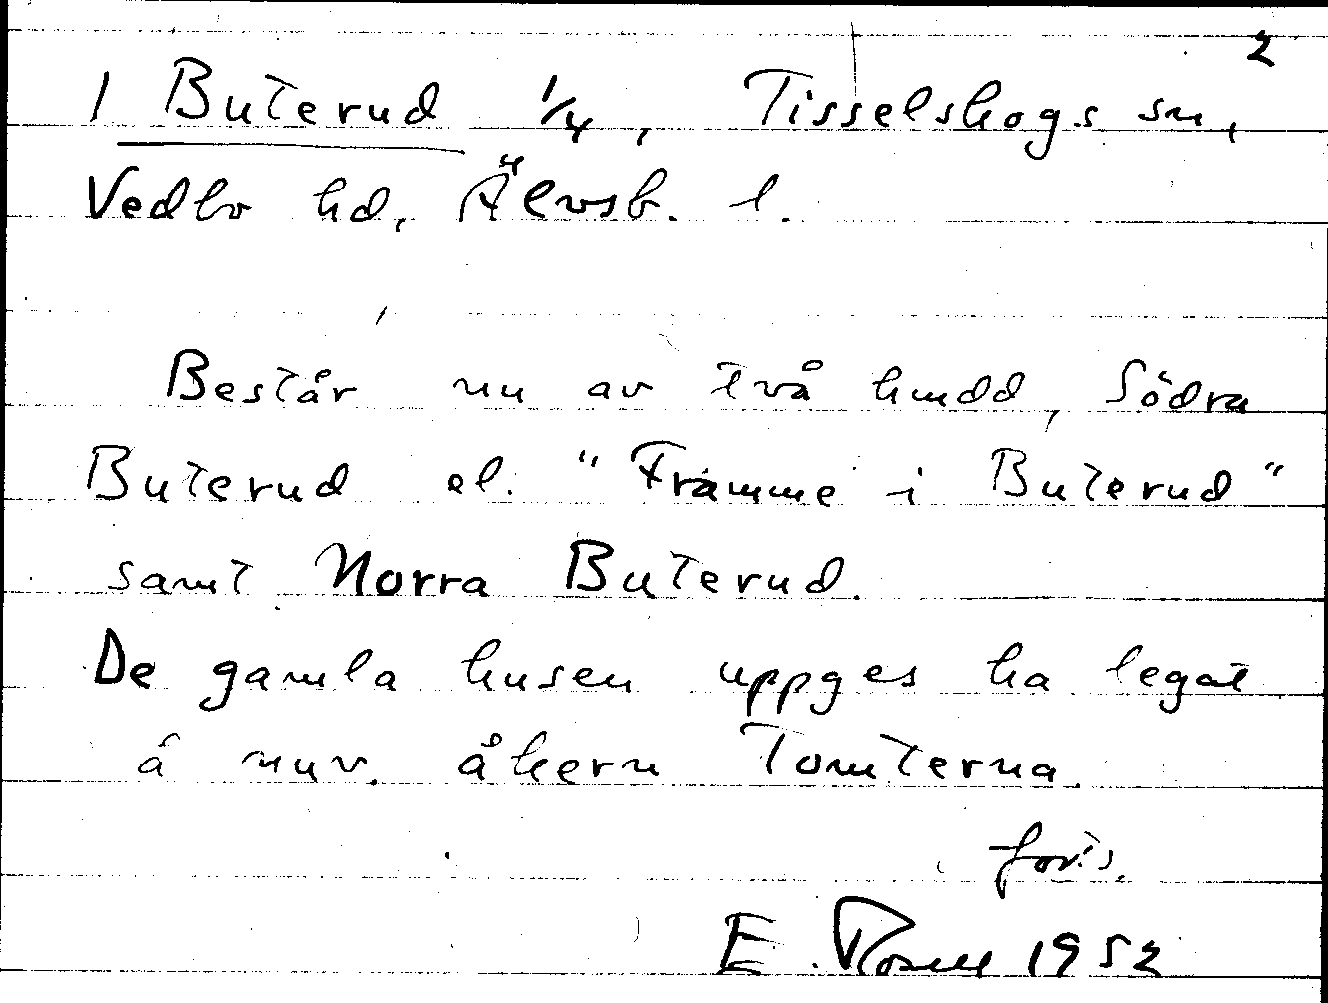 2
1 Buterud 1/4, Tisselskogs sn,
Vedbo hd, Älvsb. l.
Består nu av två hmdd, Södra
Buterud el. "Framme i Buterud"
samt Norra Buterud.
De gamla husen uppges ha legat
å nuv. åkern Tomterna.
forts.
E. Rosell 1952